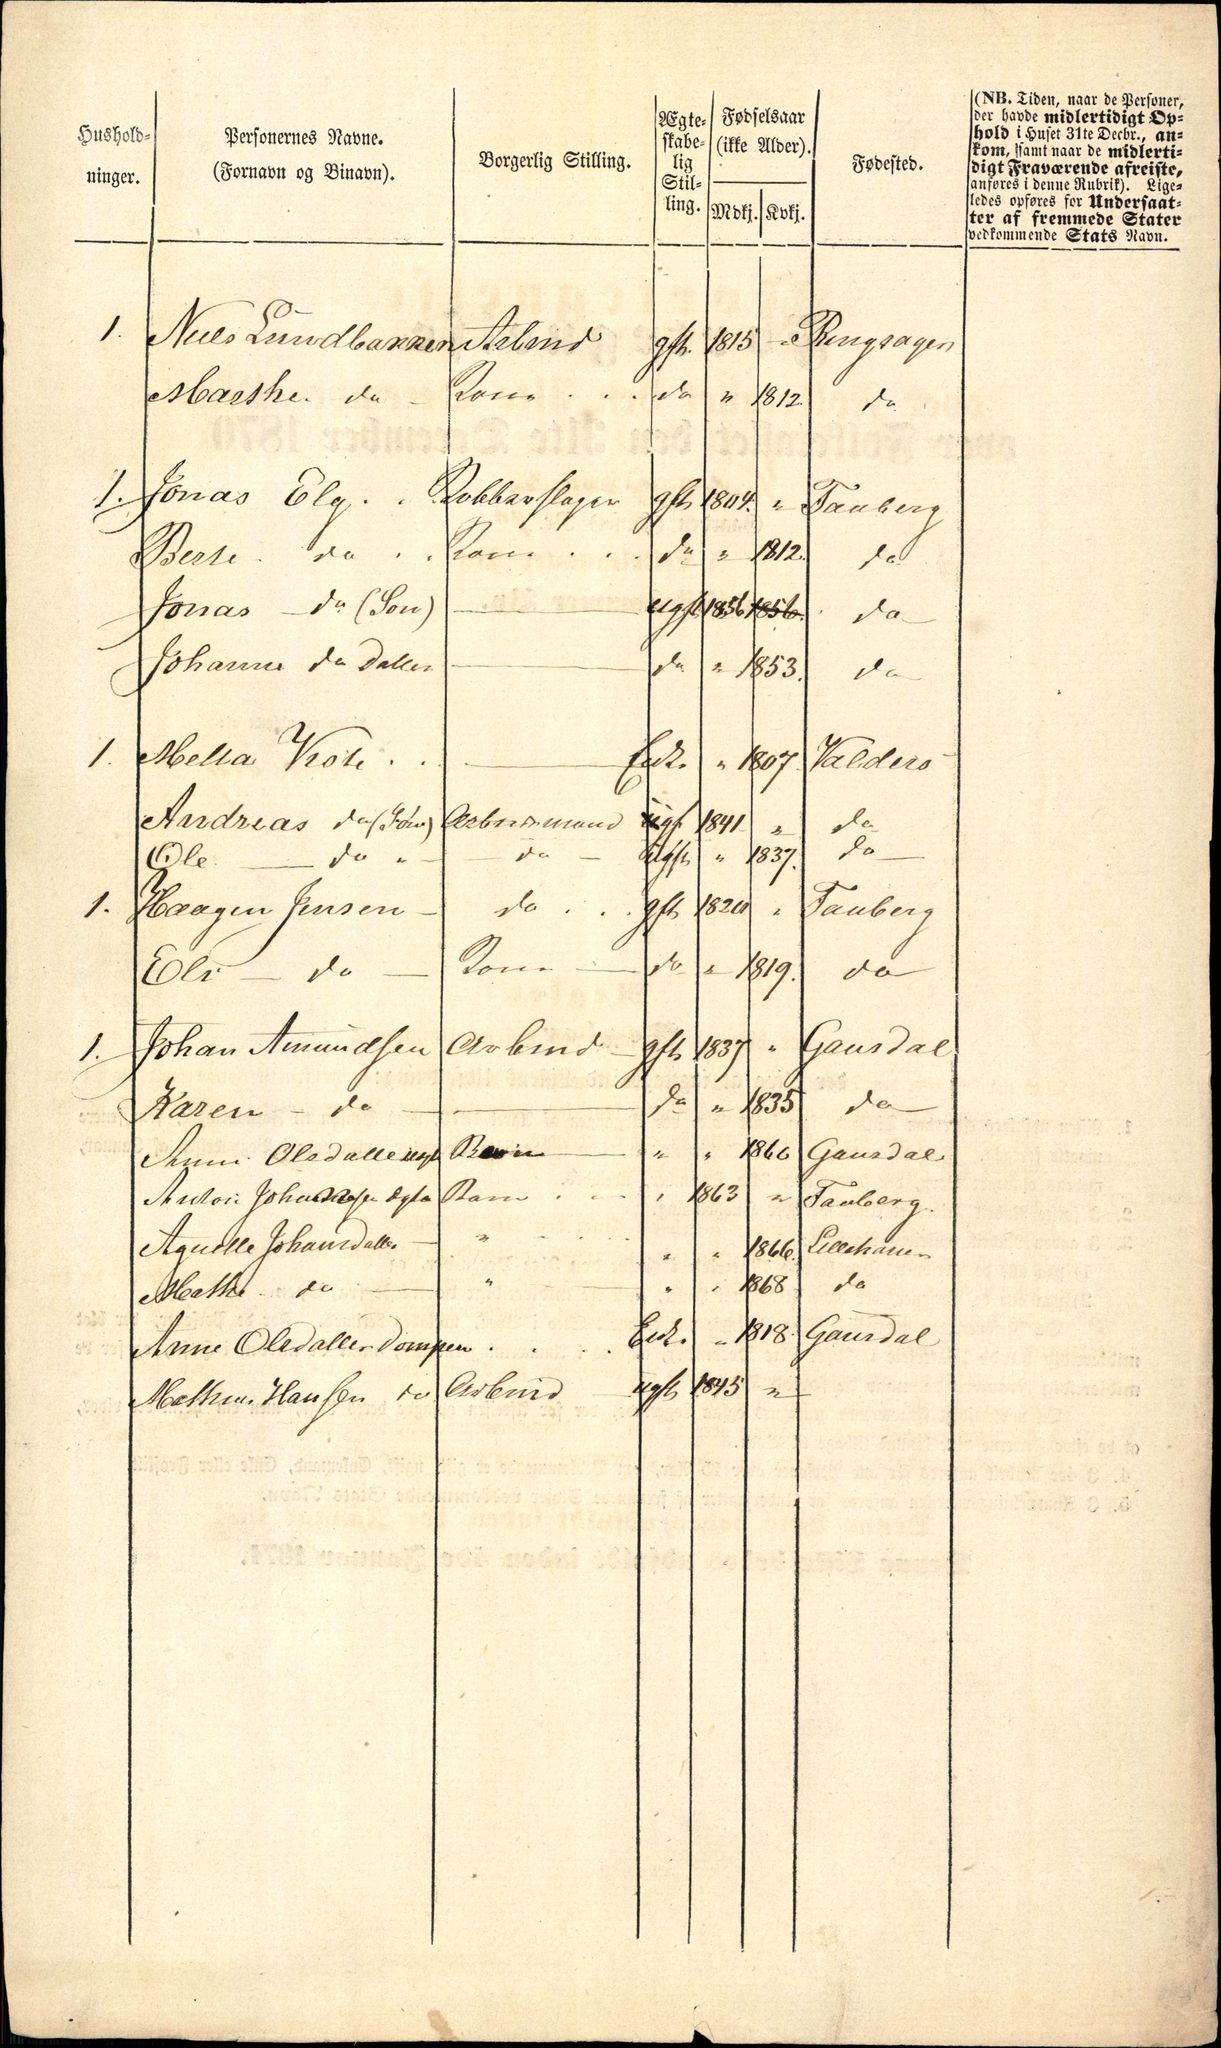 Hushold-
ninger.
Personernes Navne.
(Fornavn og Binavn).
Borgerlig Stilling.
Ægte-
skabe-
lig
Stil-
ling.
Fødselsaar
(ikke Alder).
Mdkj. Kvkj.
Fødested.
(NB. Tiden, naar de Personer,
der havde midlertidigt Op-
hold i Huset 31te Decbr., an-
kom, samt naar de midlerti-
digt Fraværende afreiste,
anføres i denne Rubrik). Lige-
ledes opføres for Undersaat-
ter af fremmede Stater
vedkommende Stats Navn.
1. Niels Lundbakken Arbmd gft. 1815 " Ringsager
Marthe do Kone do " 1812 do
1. Jonas Elg Kobberslager gft 1804. " Faaberg
Berte do Kone do " 1812. do
Jonas do (Søn) ugft 1856 1856 do
Johanne do Datter do " 1853. do
1. Mette Enke " 1807 Valders
Andreas do (Søn) Arbeidsmand ugf 1841 " do
Ole do " do ugft " 1837. do
1. Haagen Jensen do gft 1820 " Faaberg
Eli do Kone do " 1819. do
1. Johan Amundsen Arbmd gft 1837 " Gausdal
Karen do do " 1835 do
Anne Olsdatter Barn " " 1860 Gausdal
Anton Johansen Barn " 1863 " Faaberg.
Agnette Johansdatter " " " 1866. Lillehamer
Mathe do " " " 1868 do
Anne Olsdatter Dompen Enke " 1818. Gausdal
Mathias Hansen do Arbmd ugft 1845 "